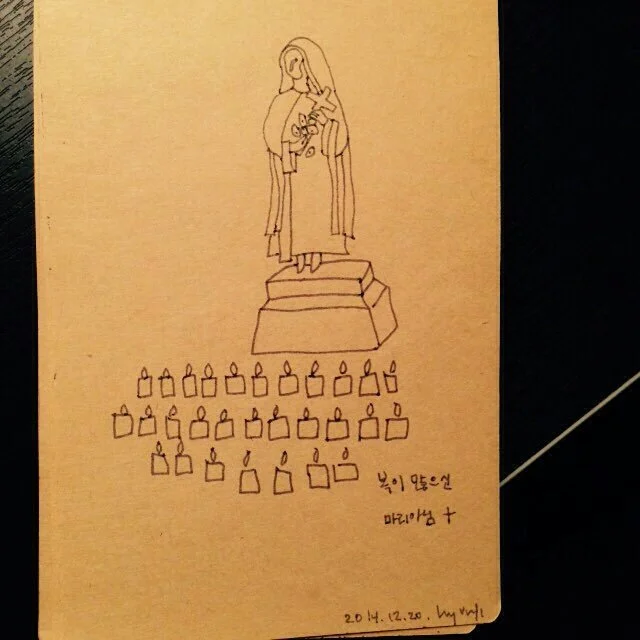 복이 많으신
마리아님 +
2014.12.20.